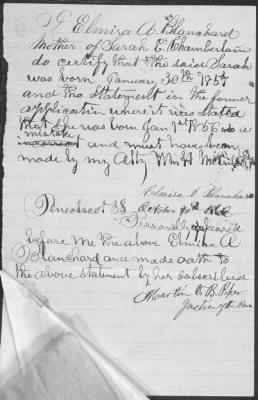 I Elmira A. Blanchard
Mother of Sarah E. Chamberlain
do certify that the said Sarah
was born January 30th 1857
and the statement in the former
application where it was stated
that she was born Jan 1st 1856 is a
mistake
incorrect and must have been
made by my Atty Wm H
Elmira A. Blanchard
Penobscot SS October
Personally appeared
before me the above Elmira A
Blanchard and made oath to
the above statement by her subscribed
Martin V. B. Piper
Justice of the Peace